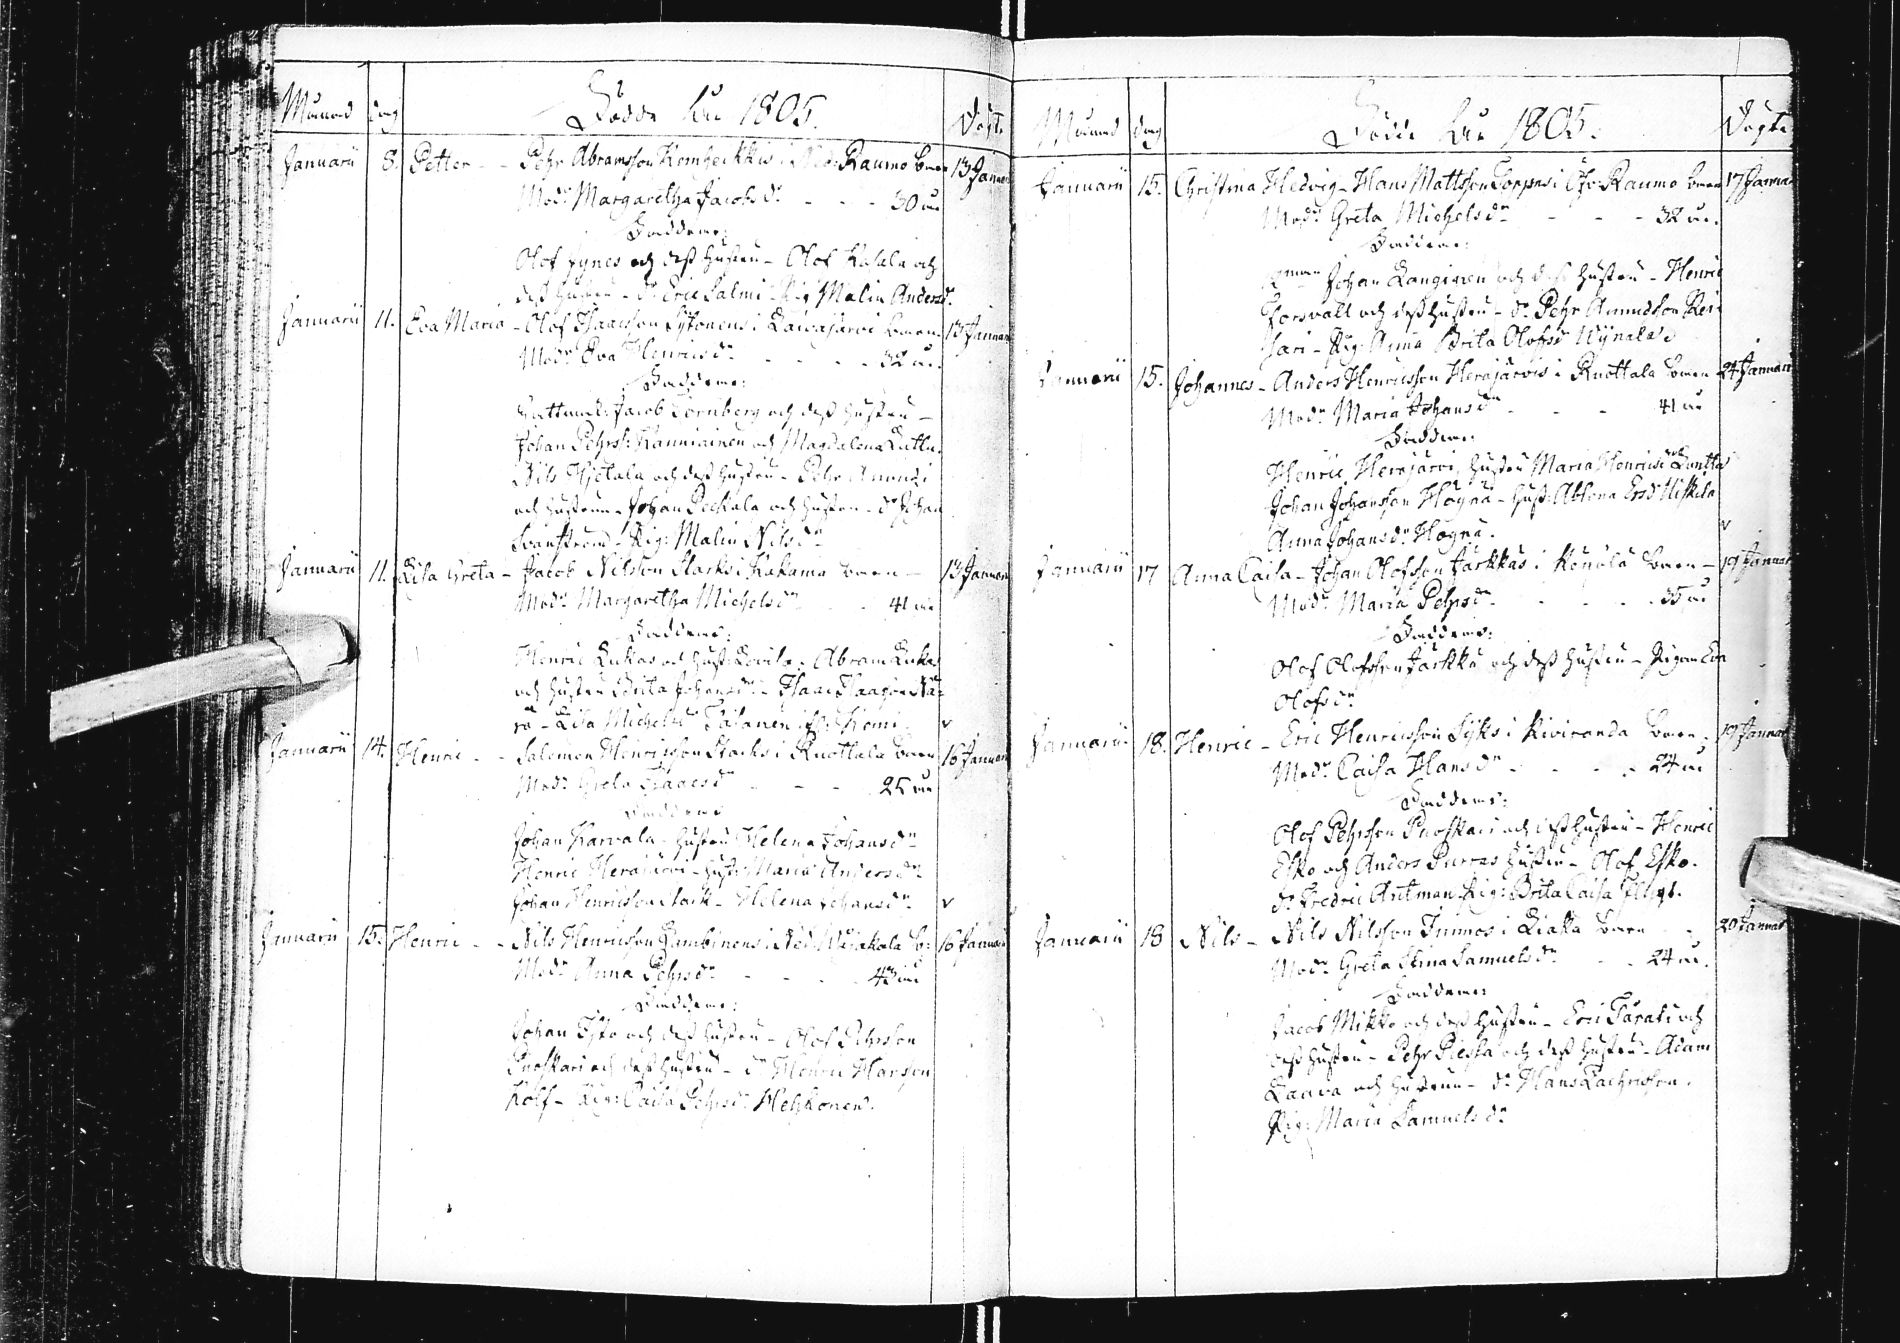 Månad dag Födde År 1805. Döpte
Januarii 8. Petter - - Pehr Abramsson Kempeikkis i Ned: Raumo barn 13 Januarii
Modr Margaretha Jacobsdr - - - 30 år
Faddrar:
Olof Fynes och dess hustru - Olof Kalala och
dess hustru - dr Eric Salmi - Pig: Malin Andersdr
Januarii 11. Eva Maria - Olof Isaacsson Lytonens i Laivajärvi barn. 13 Januarii
Modr Eva Henricsdr - - - 32 år.
Faddrar:
Jacob Tornberg och dess hustru -
Johan Pehrss: Kanniainen och Magdalena
Nils Hjetala och dess hustru - Pehr Anundi
och hustrun - Johan Peckala och hustru - dr Johan
Svanström - Pig: Malin Nilsdr
Januarii 11. Lisa Greta - Jacob Nilsson Starks i Kakama barn - 13 Januarii
Modr Margaretha Michelsdr - - 41 år
Faddrar:
Henric Lukas och hust: - Abram Lukas
och hustru Brita Johansdr - Isaac Isaacson
- Lisa Michelsdr
Januarii 14. Henric - - Salomon Henricsson Starks i Ruottala barn 16 Januarii
Modr Greta Isaacsdr - - - 25 år
Faddrar
Johan Karvala - hustru Helena Johansdr
Henric Herajärvi - hust: Maria Andersdr
Johan Henricsson Stark - Helena Johansdr
Januarii 15. Henric - - Nils Henricsson Lambinens i Ned: Wojakala b: 16 Januarii
Modr Anna Pehrsdr - - - 43 år
Faddrar:
Johan Esko och dess hustru - Olof Pehrsson
Puoskari och dess hustru - dr Henric Hansson
Kolf - Pig: Caisa Pehrsdr Hehkonen.
Månad dag Födde År 1805. Döpte
Januarii 15. Christina Hedvig - Hans Mattsson Toppos i Öfr: Raumo barn 17 Januarii
Modr Greta Michelsdr - - - 32 år.
Faddrar:
Johan Kanginen och dess hustru - Henric
Forsvall och dess hustru - dr Pehr Anundsson
- Pig: Anna Brita Olofsdr
Januarii 15. Johannes - Anders Henricsson Herajärvis i Ruottala barn 24 Januarii
Modr Maria Johansdr - - - 41 år
Faddrar:
Henric Herajärvi, hustru Maria Henricsdr
Johan Johansson Högnä - hust: Ablona Ersdr
Anna Johansdr Högnä.
Januarii 17 Anna Caisa - Johan Olofsson Jarkkäs i Könölä barn - 19 Januarii
Modr Maria Pehrsdr - - - 35 år
Faddrar:
Olof Olofsson Jarkkä och dess hustru - Pigan Eva
Olofsdr
Januarii 18. Henric - Eric Henricsson Syks i Kiviranda barn. 19 Januarii
Modr Caisa Hansdr - - - 24 år
Faddrar:
Olof Pehrsson Puoskari och dess hustru - Henric
Esko och Anders Purras hustru - Olof Esko.
dr Fredric Antman Pig: Brita Caisa
Januarii 18 Nils - Nils Nilsson Tuimos i Liakka barn - - 20 Januarii
Modr Greta Stina Samuelsdr - - 24 år.
Faddrar:
Jacob Mikko och dess hustru - Eric och
dess hustru - Pehr Pieska och dess hustru - Adam
Laava och hustrun - dr Hans Zachrisson.
Pig: Maria Samuelsdr